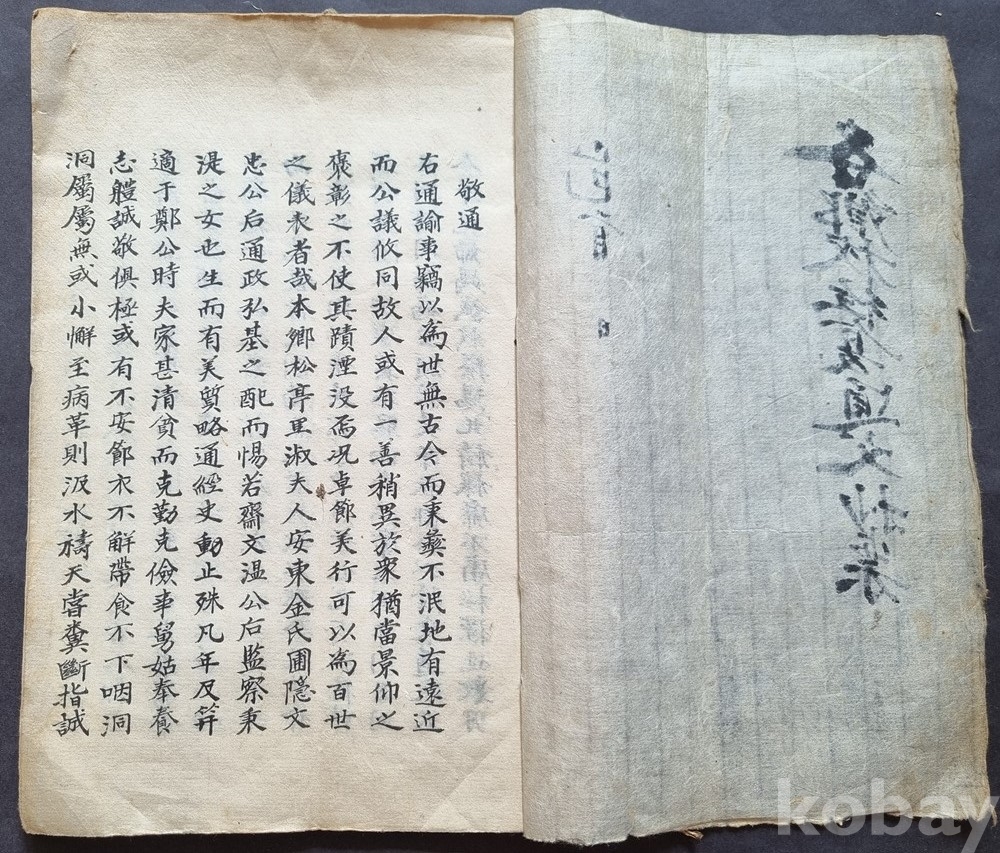 敬通
右通諭事竊以為世無古今而秉彝不泯地有遠近
而公議攸同故人或有一善稍異於衆猶當景仰之
褒彰之不使其蹟湮没焉况卓節美行可以為百世
之儀表者哉本鄉松亭里淑夫人安東金氏圃隱文
忠公后通政弘基之配而惕若齋文温公后監察秉
湜之女也生而有美質略通經史動止殊凡年及笄
適于鄭公時夫家甚清貧而克勤克儉事舅姑奉養
志軆誠敬俱極或有不安節衣不解帶食不下咽洞
洞屬屬無或小懈至病革則汲水禱天嘗糞斷指誠
kobay